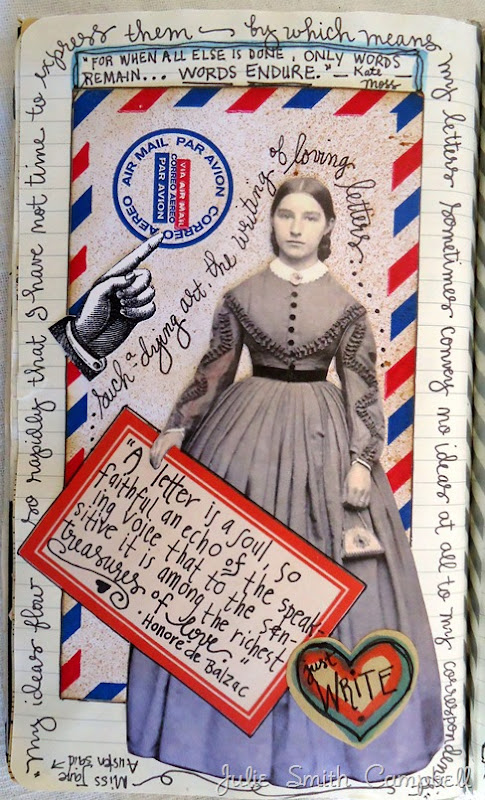 "My ideas flow so rapidly that I have not time to
express them — by which means
my letters sometimes convey no ideas at all to my correspondents"
Miss Jane
Austen said
"FOR WHEN ALL ELSE IS DONE, ONLY WORDS
REMAIN... WORDS ENDURE." — Kate
Moss
AIR MAIL PAR AVION CORREO AEREO
VIA AIR MAIL
CORREO AEREO
PAR AVION
such a dying art, the writing of loving letters...
"A letter is a soul, so
faithful an echo of the speak-
ing voice that to the sen-
sitive it is among the richest
treasures of love."
· Honoré de Balzac
just
WRITE
Julie Smith Campbell